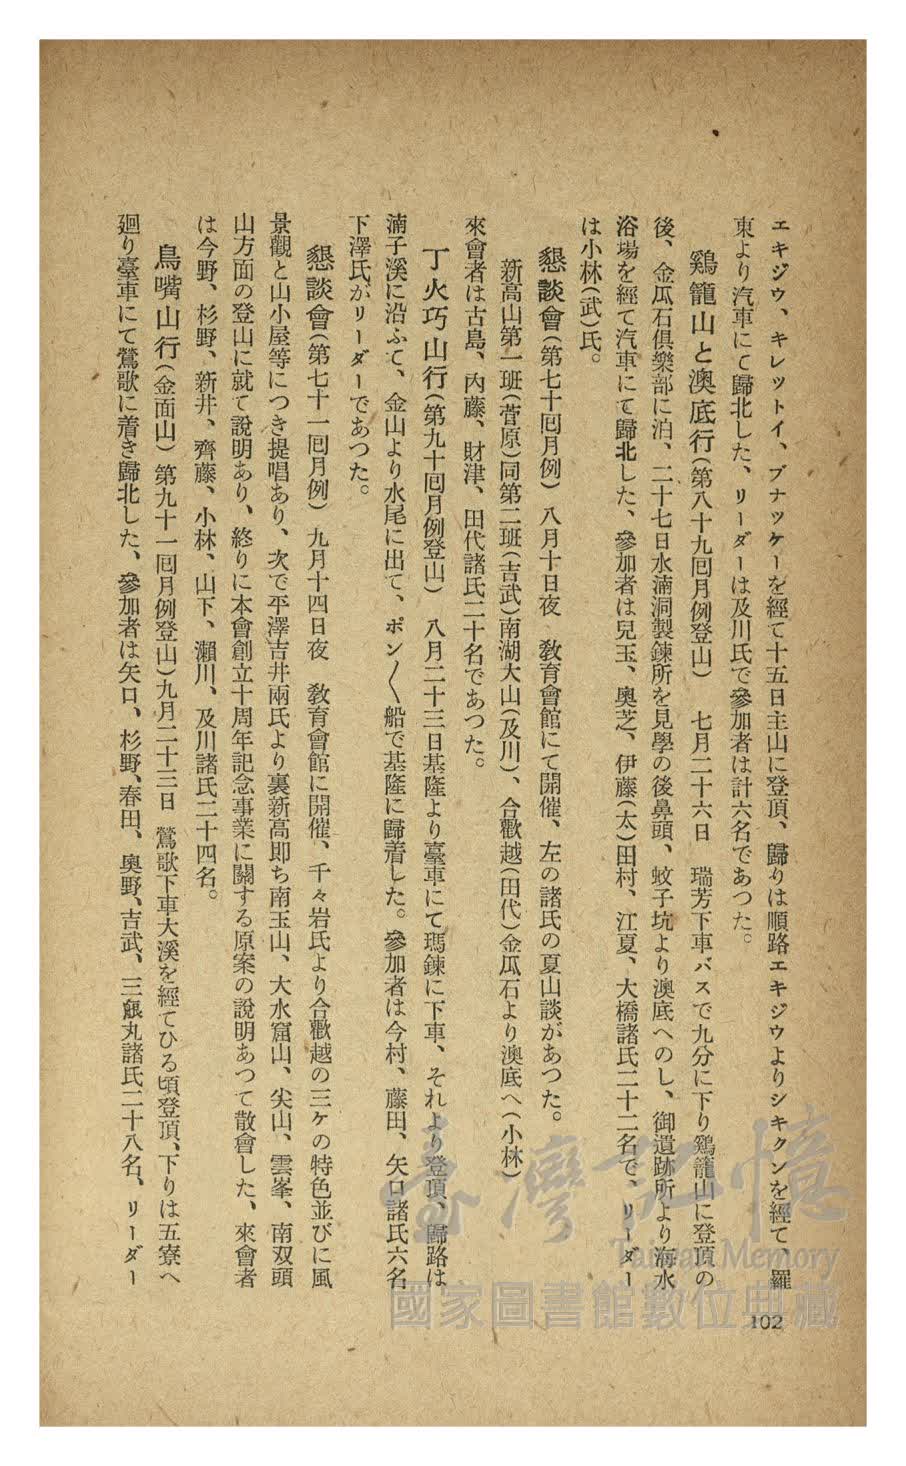 エキジウ、キレットイ、ブナッケーを經て十五日主山に登頂、歸りは順路エキジウよりシキクンを經て、羅
東より汽車にて歸北した、リーダーは及川氏で參加者は計六名であつた。
鷄籠山と澳底行(第八十九囘月例登山) 七月二十六日 瑞芳下車バスで九分に下り鷄籠山に登頂の
後、金瓜石俱樂部に泊、二十七日水湳洞製鍊所を見學の後鼻頭、蚊子坑より澳底へのし、御遺跡所より海水
浴場を經て汽車にて歸北した、參加者は兒玉、奧芝、伊藤(太)田村、江夏、大橋諸氏二十二名で、リーダー
は小林(武)氏。
懇談會(第七十囘月例) 八月十日夜 敎育會館にて開催、左の諸氏の夏山談があつた。
新高山第一班(菅原)同第二班(吉武)南湖大山(及川)、合歡越(田代)金瓜石より澳底へ(小林)
來會者は古島、內藤、財津、田代諸氏二十名であつた。
丁火巧山行(第九十囘月例登山) 八月二十三日基隆より臺車にて瑪鍊に下車、それより登頂、歸路は
湳子溪に沿ふて、金山より水尾に出て、ポン〱船で基隆に歸着した。參加者は今村、藤田、矢口諸氏六名
下澤氏がリーダーであつた。
懇談會(第七十一囘月例) 九月十四日夜 敎育會館に開催、千々岩氏より合歡越の三ケの特色並びに風
景觀と山小屋等につき提唱あり、次で平澤吉井兩氏より裏新高卽ち南玉山、大水窟山、尖山、雲峯、南双頭
山方面の登山に就て說明あり、終りに本會創立十周年記念事業に關する原案の說明あつて散會した、來會者
は今野、杉野、新井、齊藤、小林、山下、瀨川、及川諸氏二十四名。
鳥嘴山行(金面山) 第九十一囘月例登山)九月二十三日 鶯歌下車大溪を經てひる頃登頂、下りは五寮へ
廻り臺車にて鶯歌に着き歸北した、參加者は矢口、杉野、春田、奧野、吉武、三銀丸諸氏二十八名、リーダー
102
臺灣記憶
Taiwan Memory
國家圖書館數位典藏